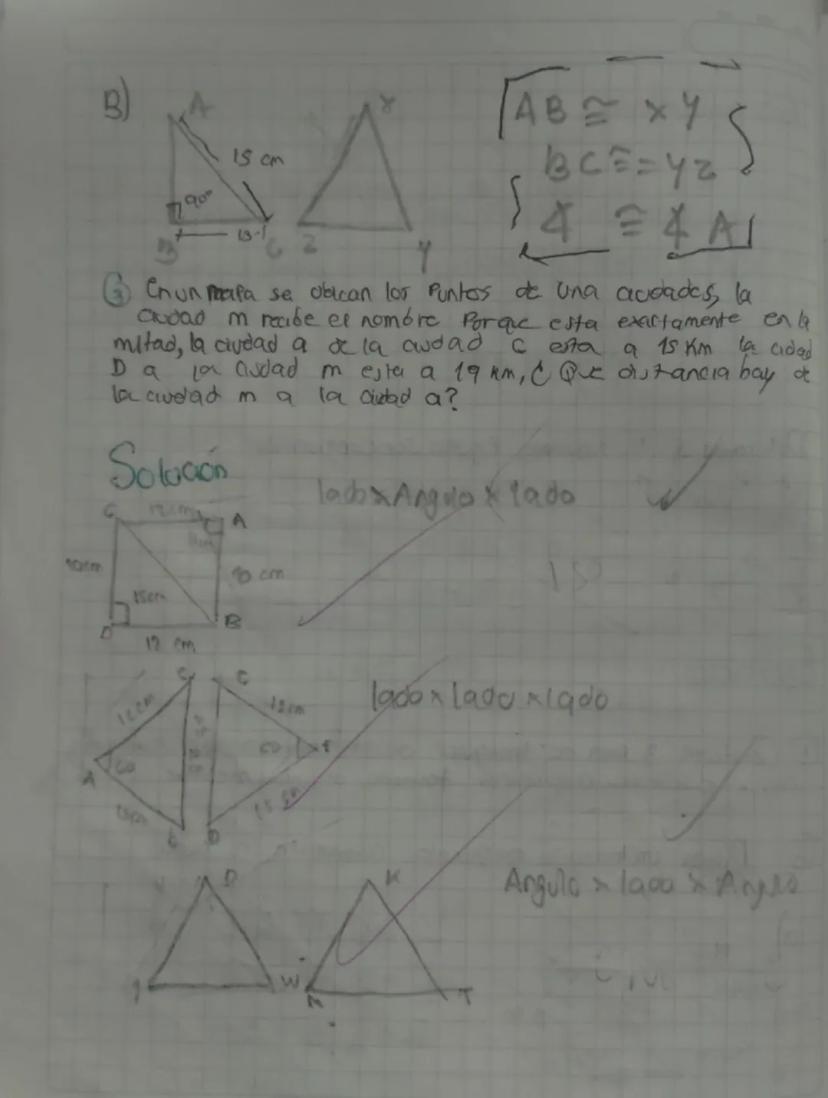 B)
A
15 cm
90°
B
C
X
Z
Y
AB ≅ XY
BC ≅ = YZ
∡ ≅ ∡ A
③ En un mapa se obican los puntos de una ciudades, la
ciudad m recibe el nombre porque esta exactamente en la
mitad, la ciudad a de la ciudad C esta a 15 Km la cidad
D a la ciudad m esta a 19 km, ¿ Que distancia hay de
la ciudad m a la ciudad a?
Solución
lado x Angulo x lado
C
12 cm
A
90 cm
15cm
D
B
12 cm
lado x lado x lado
C
C
12cm
12cm
A
60
60
15cm
15 cm
D
Angulo x lado x Angulo
D
K
W
T